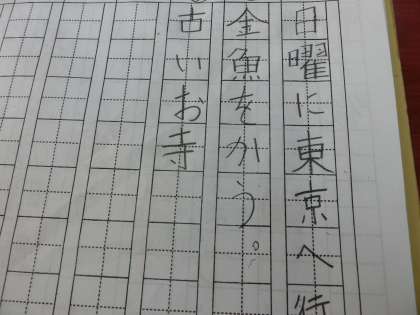 日曜に東京へ行
金魚をかう。
古いお寺